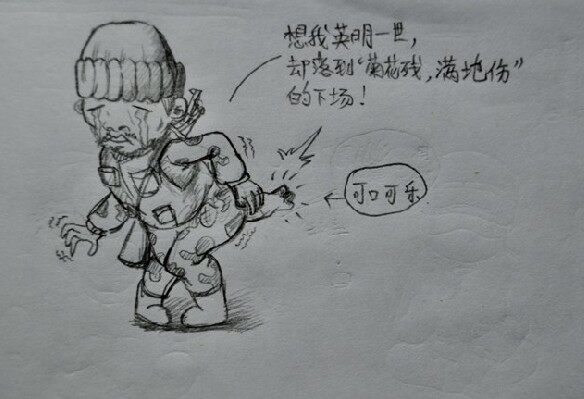 想我英明一世，
却落到“菊花残，满地伤”
的下场！
可口可乐